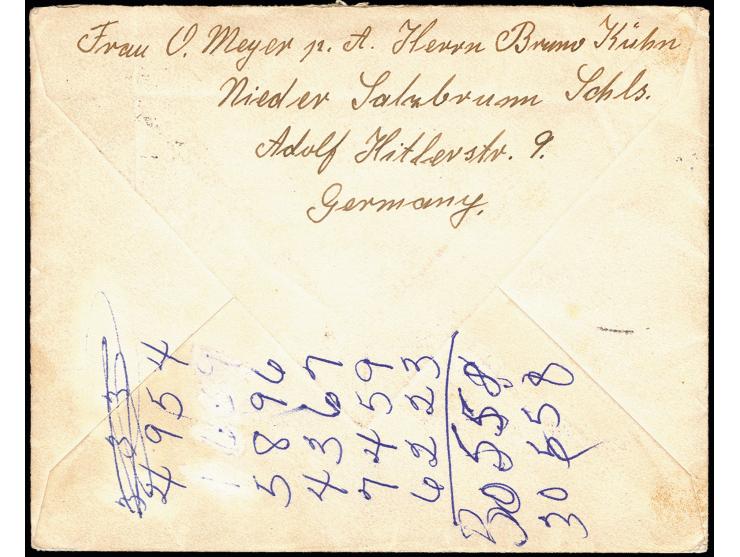 Frau O. Meyer p. A. Herrn Bruno Kühn
Nieder Salzbrunn Schls.
Adolf Hitlerstr. 9.
Germany.
4954
1659
5896
4367
7459
6223
30558
30558